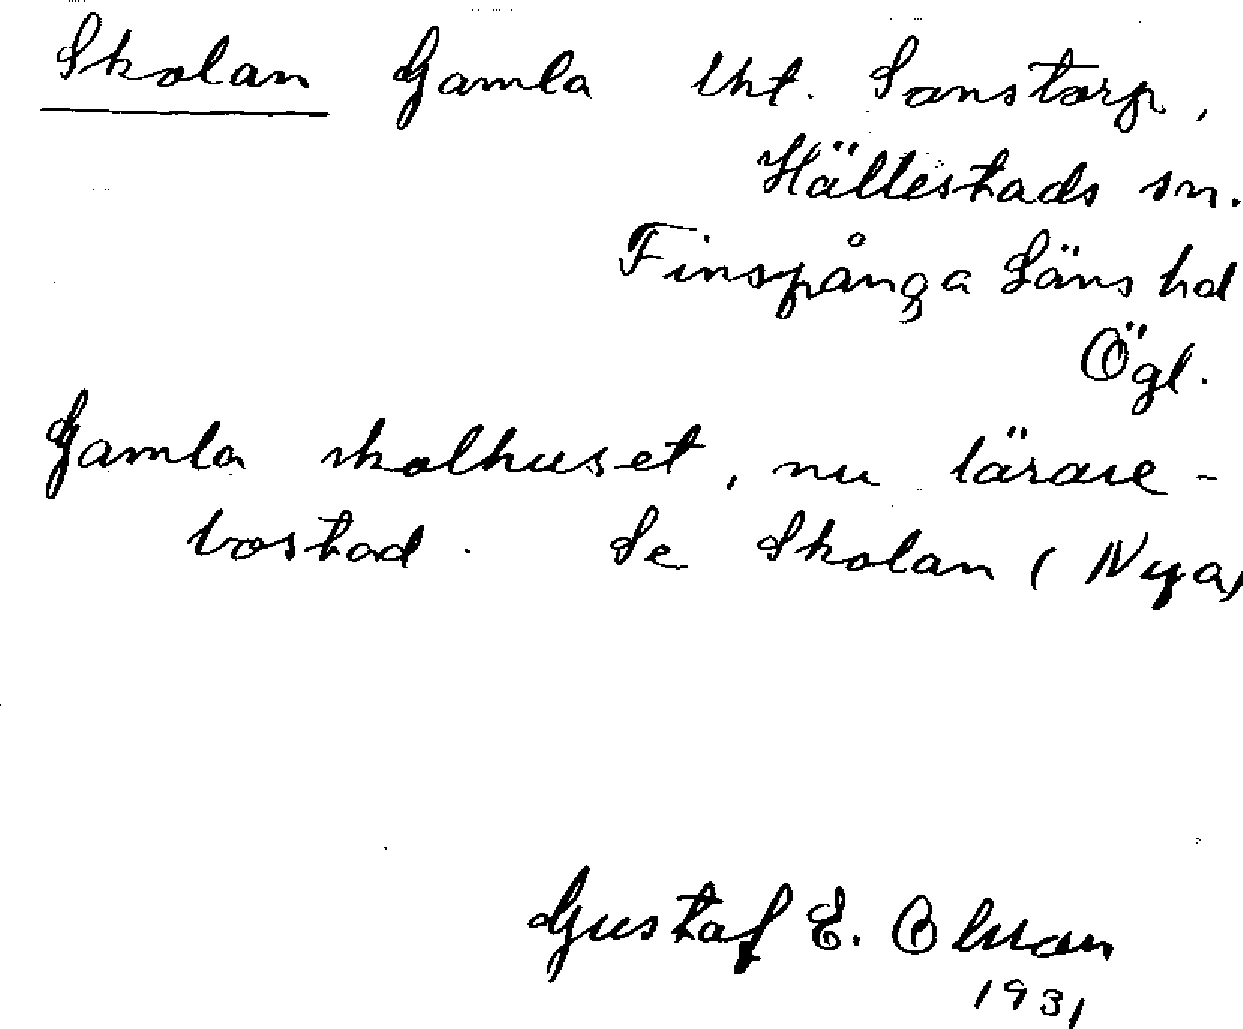 Skolan Gamla lht. Sonstorp,
Hällestads sn.
Finspånga Läns hd
Ögl.
Gamla skolhuset, nu lärare-
bostad. Se Skolan (Nya)
Gustaf E. Olsson
1931